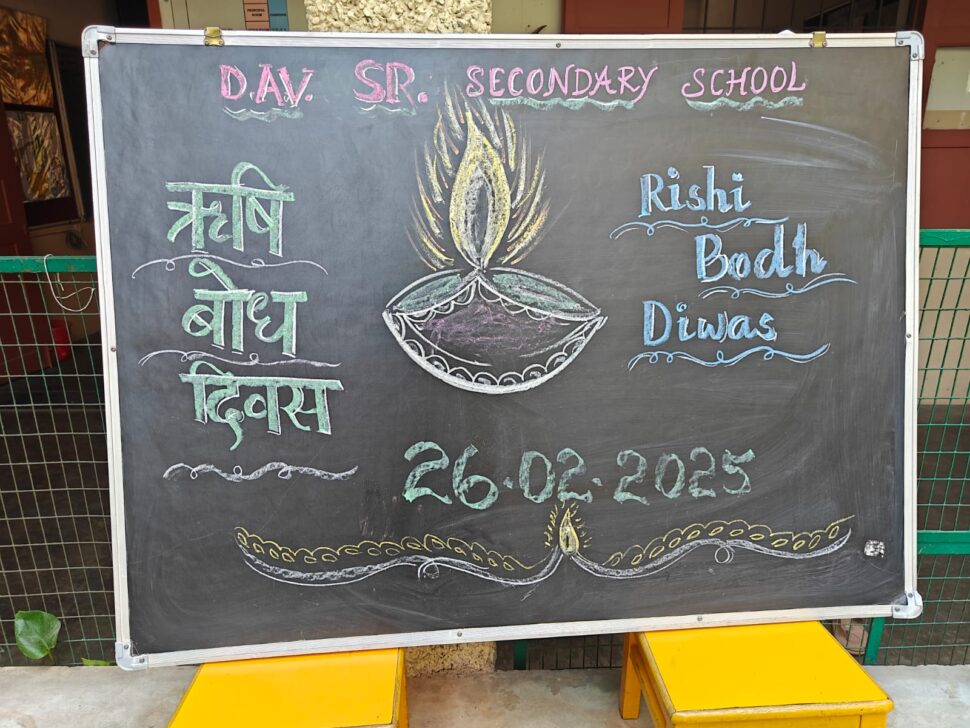 D.AV. SR. SECONDARY SCHOOL
ऋषि
बोध
दिवस
Rishi
Bodh
Diwas
26.02.2025